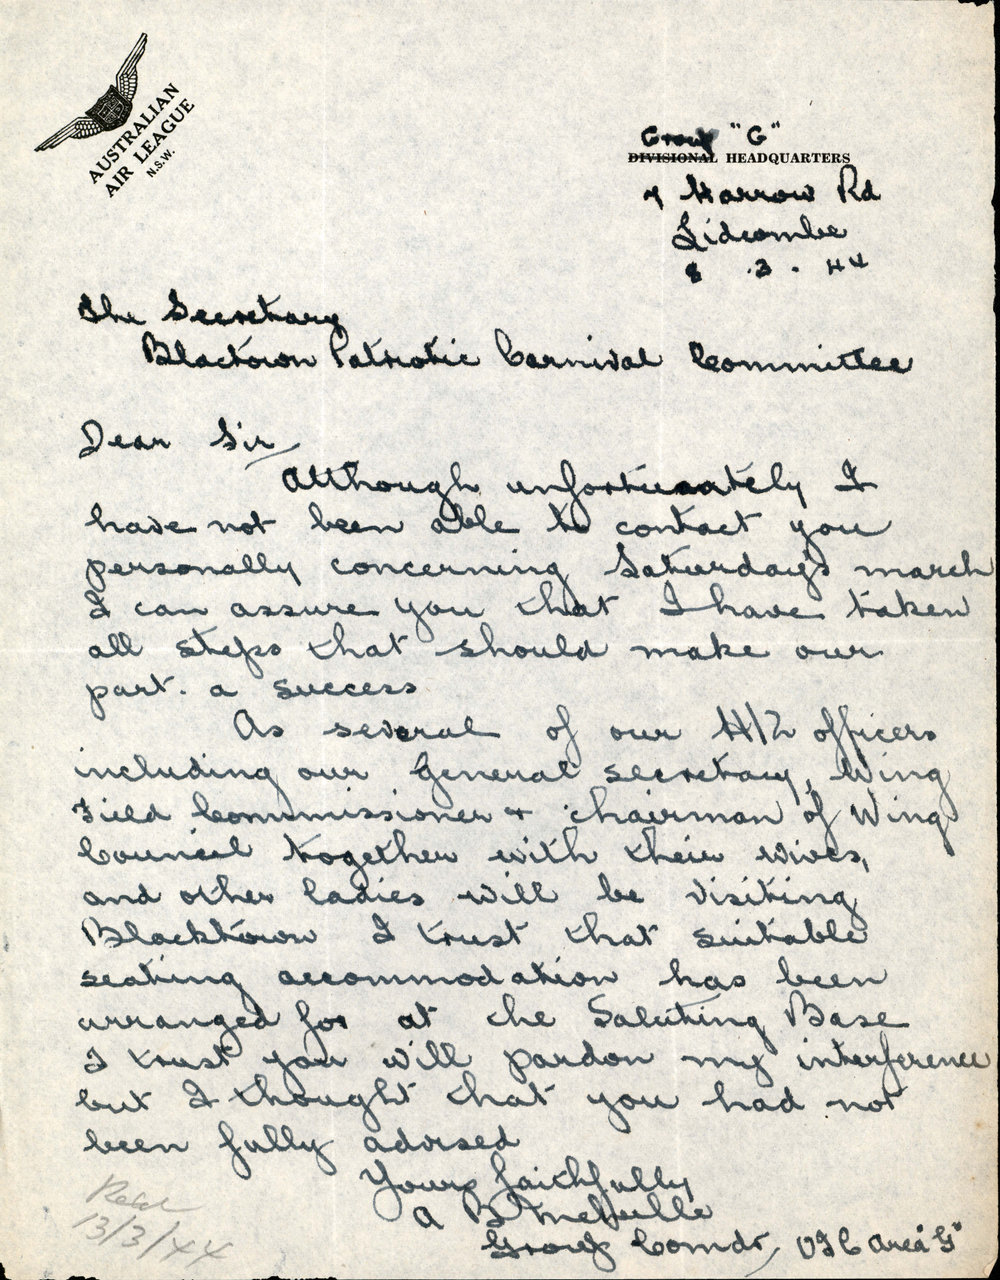 AUSTRALIAN
AIR LEAGUE
N.S.W.
Group "G"
DIVISIONAL HEADQUARTERS
4 Harrow Rd
Lidcombe
8 . 3 . 44
The Secretary
Blacktown Patriotic Carnival Committee
Dear Sir,
Although unfortunately I
have not been able to contact you
personally concerning Saturday's march
I can assure you that I have taken
all steps that should make our
part. a success
As several of our H/Q officers
including our General secretary, Wing
Field Commissioner + chairman of Wing
Council together with their wives,
and other ladies will be visiting
Blacktown I trust that suitable
seating accommodation has been
arranged for at the Saluting Base
I trust you will pardon my interference
but I thought that you had not
been fully advised
Yours faithfully
A B Melville
Group Comdr, O/C Area "G"
Recd
13/3/44